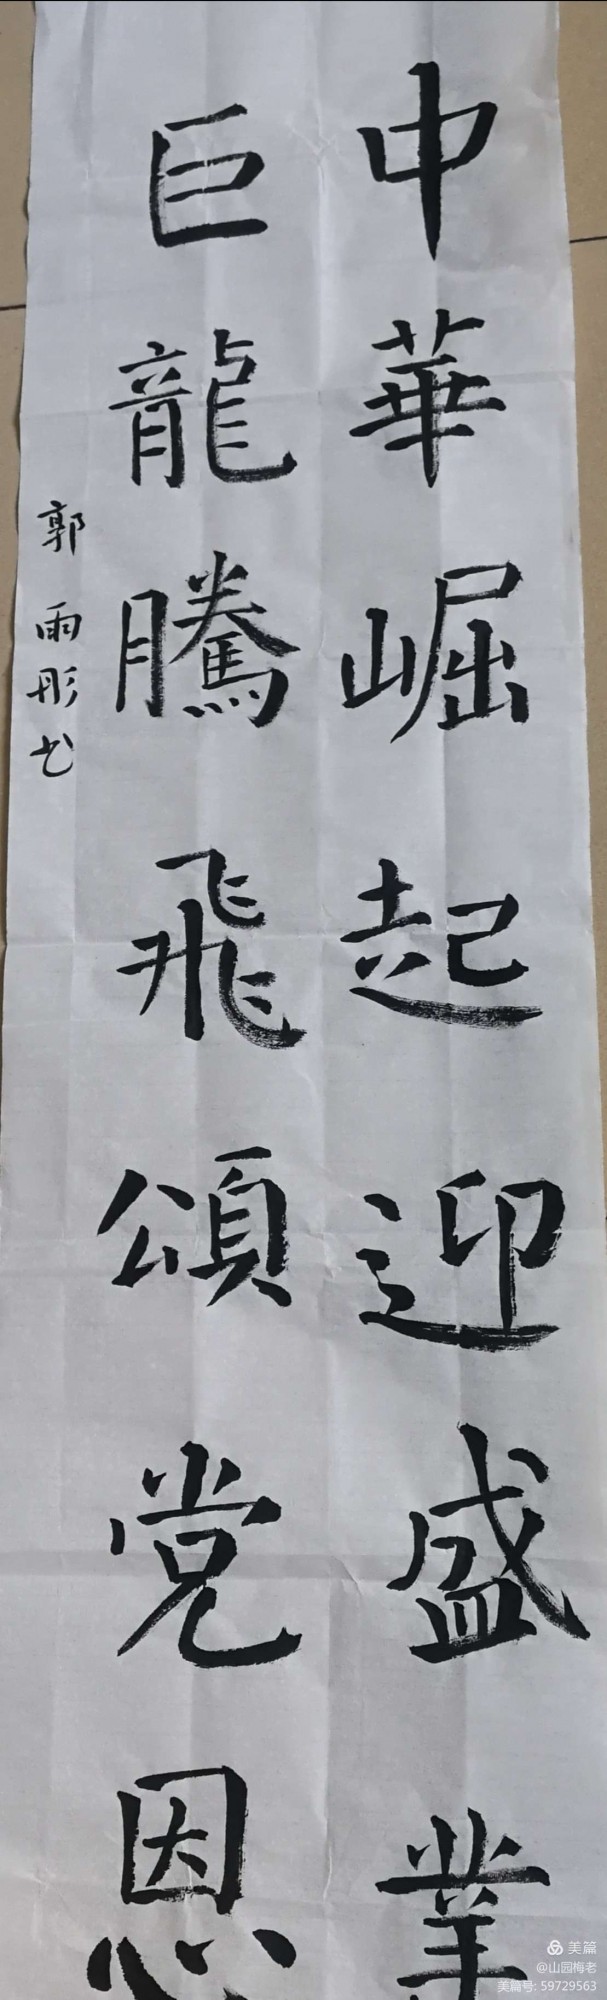 中華崛起迎盛業
巨龍騰飛頌党恩
郭雨彤书
美篇
@山园梅老
美篇号: 59729563